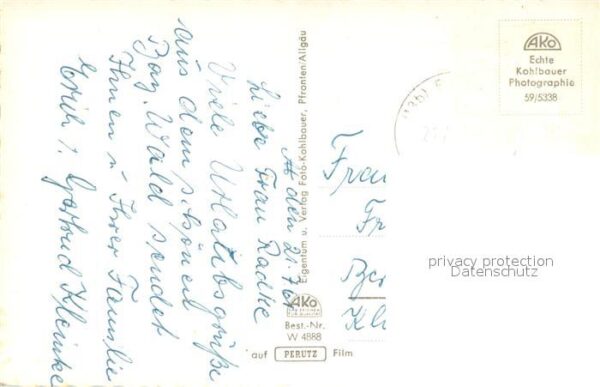 A. den 21.7.6
Liebe Frau Radke
Viele Urlaubsgrüße
aus dem schönen
Bay. Wald sendet
Ihnen u. Ihrer Familie
Erich u. Gertrud Kleinke
Eigentum u. Verlag Foto-Kohlbauer, Pfronten/Allgäu
AKO
Best.-Nr.
W 4888
auf PERUTZ Film
AKO
Echte
Kohlbauer
Photographie
59/5338
Frau
Fr
Ber
Kl
privacy protection
Datenschutz